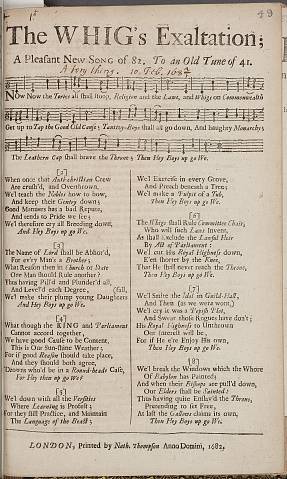 1st
49
The WHIG's Exaltation;
A Pleasant New Song of 82. To an Old Tune of 41.
10. Feb. 168½
Now Now the Tories all shall stoop, Religion and the Laws, and Whigs on Commonwealth
Get up to Tap the Good Old Cause; Tantivy-Boys shall all go down, And haughty Monarchy;
The Leathern Cap shall brave the Throne; Then Hey Boys up go We.
[2]
When once that Antichristian Crew
Are crush'd, and Overthrown,
We'l teach the Nobles how to bow,
And keep their Gentry down;
Good Manners has a bad Repute,
And tends to Pride we see;
We'l therefore cry all Breeding down,
And Hey Boys up go We.
[3]
The Name of Lord shall be Abhor'd,
For ev'ry Man's a Brother;
What Reason then in Church or State
One Man should Rule another?
Thus having Pill'd and Plunder'd all,
And Levell'd each Degree,
We'l make their plump young Daughters fall,
And Hey Boys up go We.
[4]
What though the KING and Parliament
Cannot accord together,
We have good Cause to be Content,
This is Our Sun-shine Weather;
For if good Reason should take place,
And they should both agree,
Zowns who'd be in a Round-heads Case,
For Hey then up go We?
[5]
We'l down with all the Versities
Where Learning is Profest;
For they still Practice, and Maintain
The Language of the Beast;
We'l Exercise in every Grove,
And Preach beneath a Tree;
We'l make a Pulpit of a Tub,
Then Hey Boys up go We.
[6]
The Whigs shall Rule Committee Chair,
Who will such Laws Invent,
As shall Exclude the Lawful Heir
By Act of Parliament:
We'l cut his Royal Highness down,
E'en shorter by the Knee,
That He shall never reach the Throne,
Then Hey Boys up go We.
[7]
We'l Smite the Idol in Guild-Hall,
And Then (as we were wont,)
We'l cry it was a Popish Plot,
And Swear those Rogues have don't;
His Royal Highness to Unthrone
Our Interest will be,
For if He e're Enjoy His own,
Then Hey Boys up go We.
[8]
We'l break the Windows which the Whore
Of Babylon has Painted;
And when their Bishops are pull'd down,
Our Elders shall be Sainted:
Thus having quite Enslav'd the Throne,
Pretending to set Free,
At last the Gallows claims its own,
Then Hey Boys up go We.
LONDON, Printed by Nath. Thompson Anno Domini, 1682.